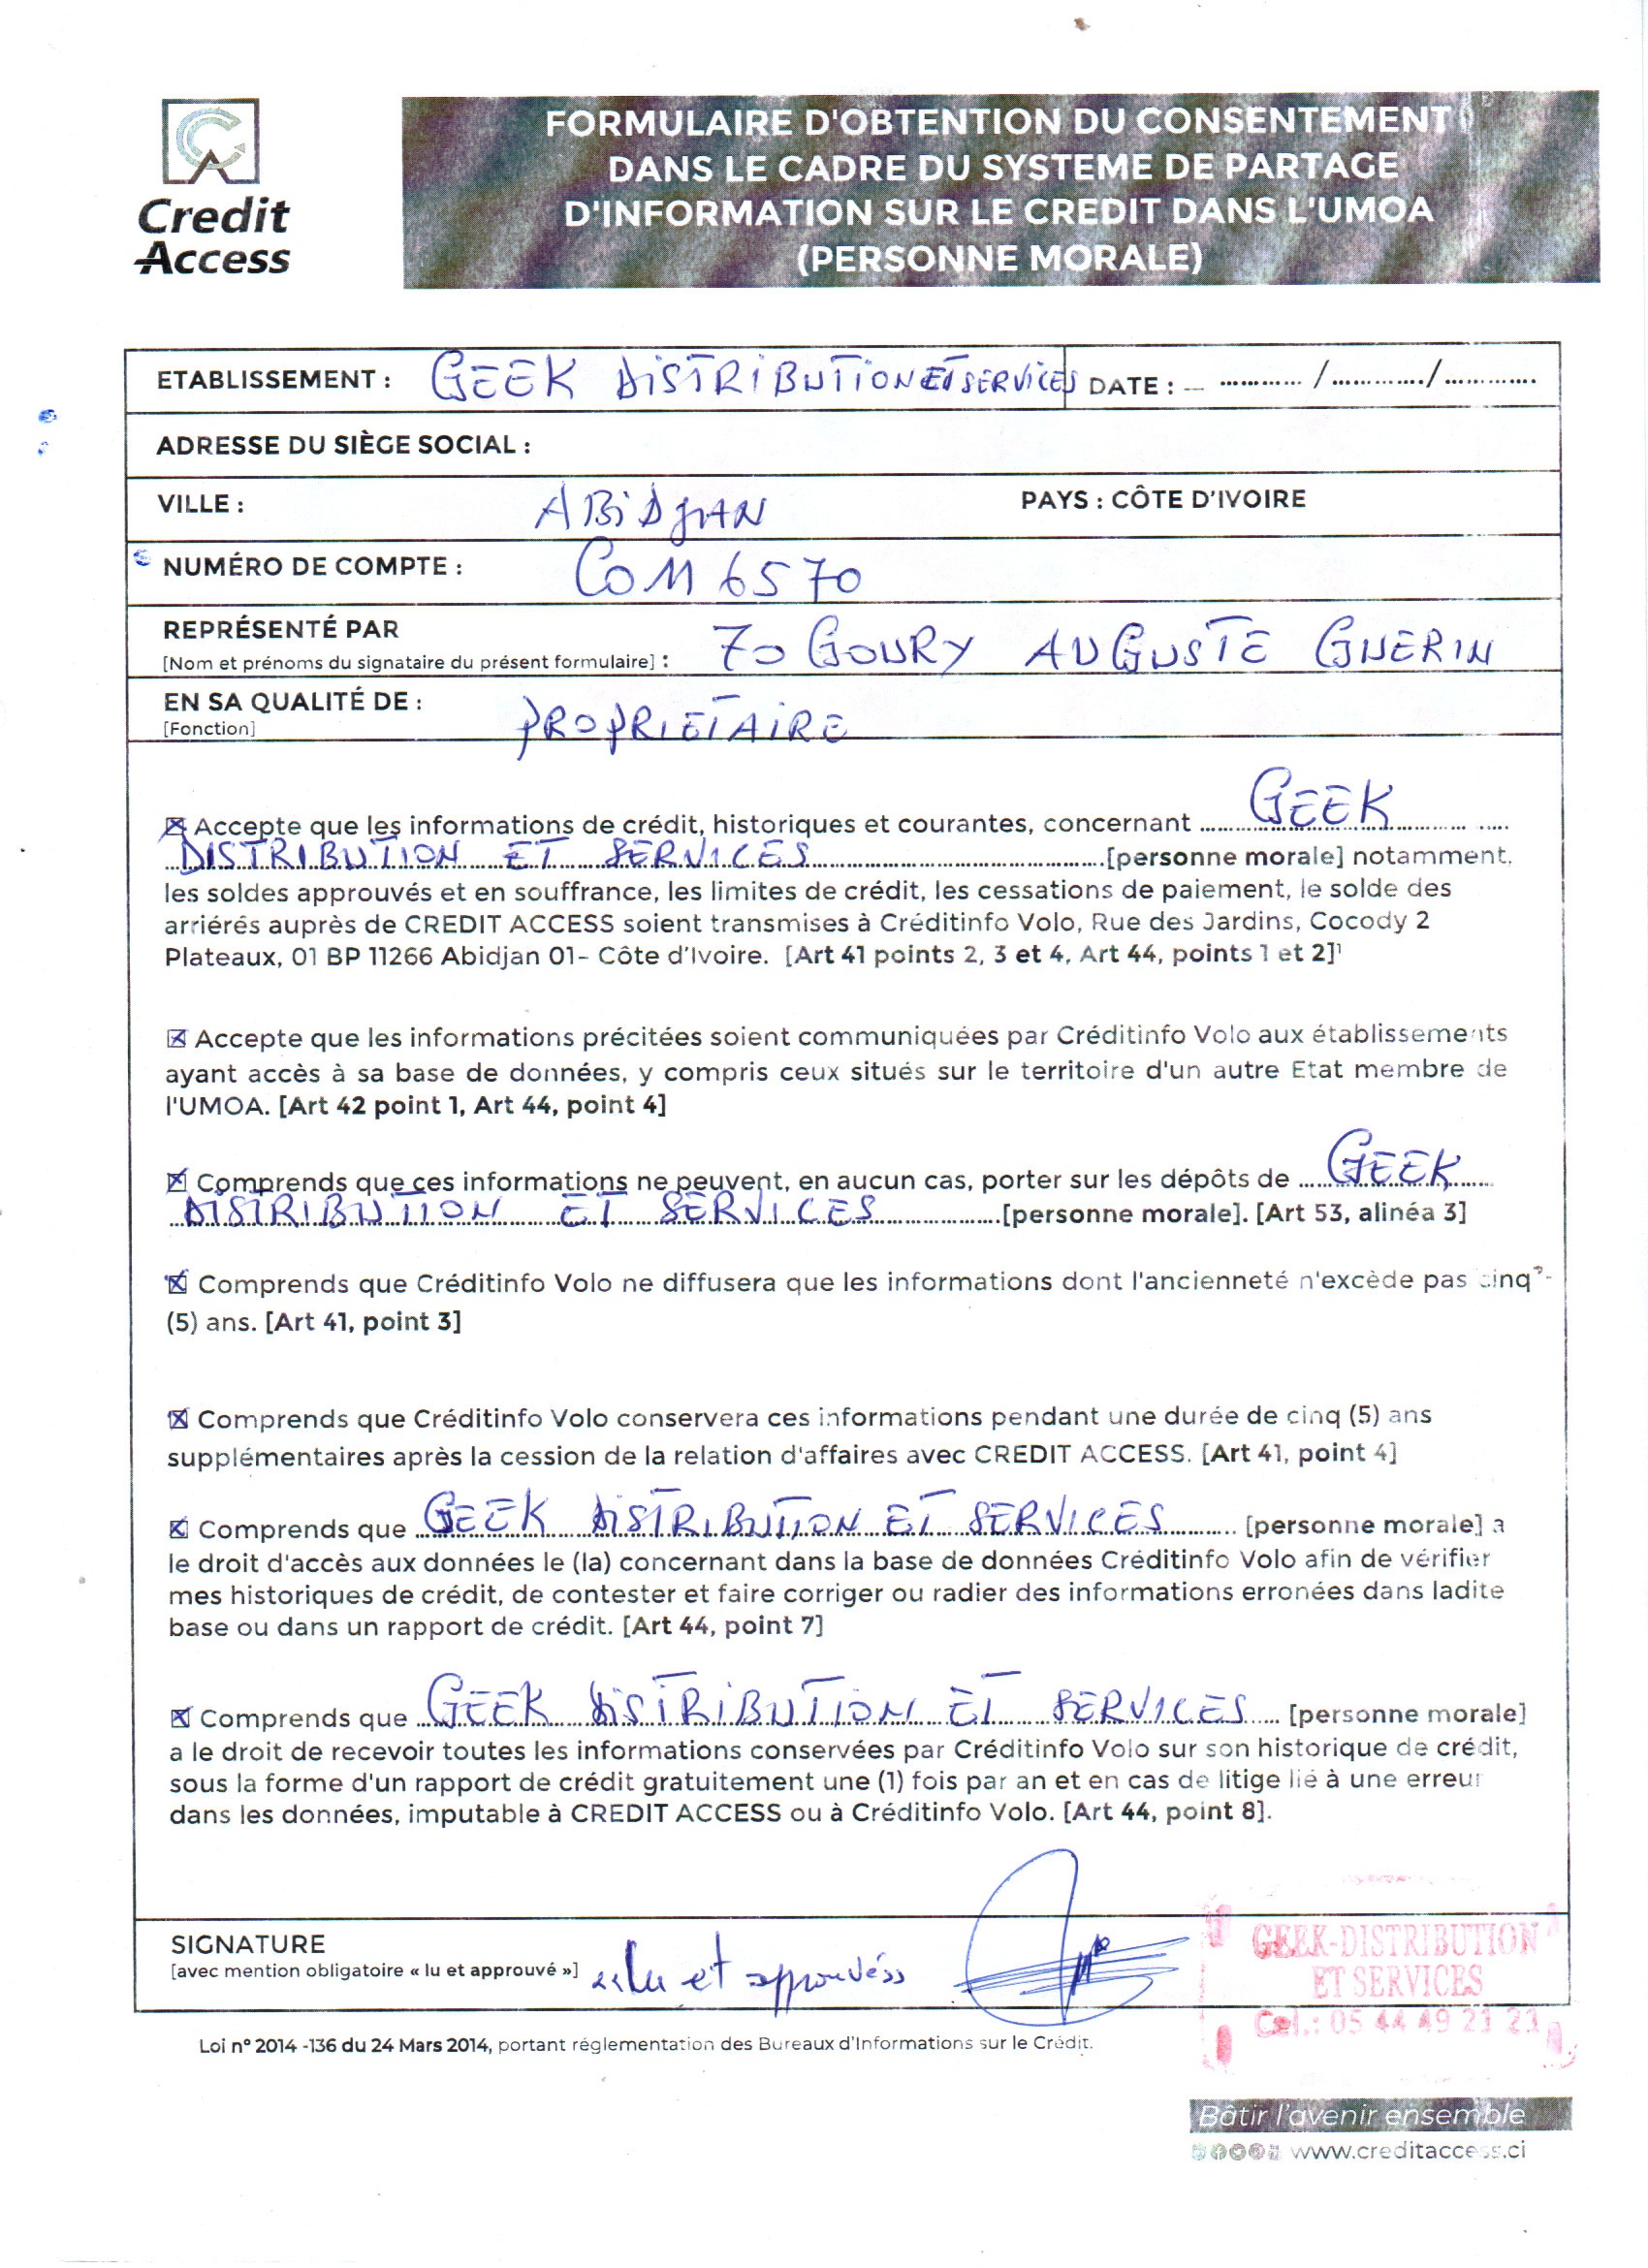 Credit
Access
FORMULAIRE D'OBTENTION DU CONSENTEMENT
DANS LE CADRE DU SYSTEME DE PARTAGE
D'INFORMATION SUR LE CREDIT DANS L'UMOA
(PERSONNE MORALE)
ETABLISSEMENT : GEEK DISTRIBUTION ET SERVICES DATE : ............ /............./.............
ADRESSE DU SIÈGE SOCIAL :
VILLE : ABIDJAN PAYS : CÔTE D'IVOIRE
NUMÉRO DE COMPTE : COM 6570
REPRÉSENTÉ PAR
[Nom et prénoms du signataire du présent formulaire] : ZO GOURY AUGUSTE GUERIN
EN SA QUALITÉ DE : PROPRIETAIRE
[Fonction]
☒ Accepte que les informations de crédit, historiques et courantes, concernant GEEK
DISTRIBUTION ET SERVICES [personne morale] notamment,
les soldes approuvés et en souffrance, les limites de crédit, les cessations de paiement, le solde des
arriérés auprès de CREDIT ACCESS soient transmises à Créditinfo Volo, Rue des Jardins, Cocody 2
Plateaux, 01 BP 11266 Abidjan 01- Côte d'Ivoire. [Art 41 points 2, 3 et 4, Art 44, points 1 et 2]¹
☒ Accepte que les informations précitées soient communiquées par Créditinfo Volo aux établissements
ayant accès à sa base de données, y compris ceux situés sur le territoire d'un autre Etat membre de
l'UMOA. [Art 42 point 1, Art 44, point 4]
☒ Comprends que ces informations ne peuvent, en aucun cas, porter sur les dépôts de GEEK
DISTRIBUTION ET SERVICES [personne morale]. [Art 53, alinéa 3]
☒ Comprends que Créditinfo Volo ne diffusera que les informations dont l'ancienneté n'excède pas cinq
(5) ans. [Art 41, point 3]
☒ Comprends que Créditinfo Volo conservera ces informations pendant une durée de cinq (5) ans
supplémentaires après la cession de la relation d'affaires avec CREDIT ACCESS. [Art 41, point 4]
☒ Comprends que GEEK DISTRIBUTION ET SERVICES [personne morale] a
le droit d'accès aux données le (la) concernant dans la base de données Créditinfo Volo afin de vérifier
mes historiques de crédit, de contester et faire corriger ou radier des informations erronées dans ladite
base ou dans un rapport de crédit. [Art 44, point 7]
☒ Comprends que GEEK DISTRIBUTION ET SERVICES [personne morale]
a le droit de recevoir toutes les informations conservées par Créditinfo Volo sur son historique de crédit,
sous la forme d'un rapport de crédit gratuitement une (1) fois par an et en cas de litige lié à une erreur
dans les données, imputable à CREDIT ACCESS ou à Créditinfo Volo. [Art 44, point 8].
SIGNATURE
[avec mention obligatoire « lu et approuvé »] «Lu et approuvé»
GEEK-DISTRIBUTION
ET SERVICES
Cel.: 05 44 49 21 21
Loi n° 2014 -136 du 24 Mars 2014, portant réglementation des Bureaux d'Informations sur le Crédit.
Bâtir l'avenir ensemble
www.creditaccess.ci